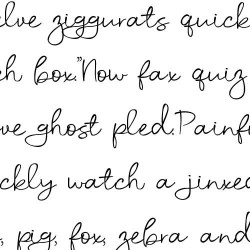 elve ziggurats quick
ch box."Now fax quiz
ve ghost pled.Painfu
ckly watch a jinxed
, pig, fox, zebra and